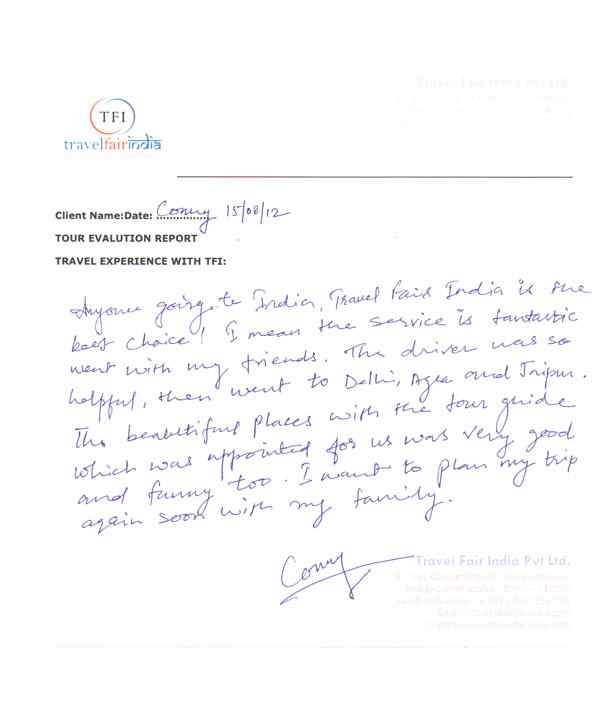 TFI
travelfairindia
Client Name:Date: Conny 15/08/12
TOUR EVALUTION REPORT
TRAVEL EXPERIENCE WITH TFI:
Anyone going to India, Travel Fair India is the
best choice! I mean the service is fantastic
went with my friends. The driver was so
helpful, then went to Delhi, Agra and Jaipur.
The beautiful places with the tour guide
which was appointed for us was very good
and funny too. I want to plan my trip
again soon with my family.
Conny
Travel Fair India Pvt Ltd.